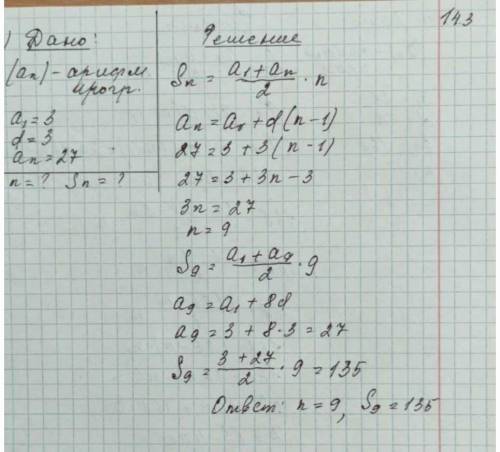 143
) Дано:
(an) - арифм
прогр.
a₁ = 3
d = 3
an = 27
n = ? Sn = ?
Решение
Sn = (a₁ + an)/2 · n
an = a₁ + d(n-1)
27 = 3 + 3(n-1)
27 = 3 + 3n - 3
3n = 27
n = 9
S₉ = (a₁ + a₉)/2 · 9
a₉ = a₁ + 8d
a₉ = 3 + 8·3 = 27
S₉ = (3 + 27)/2 · 9 = 135
Ответ: n = 9, S₉ = 135